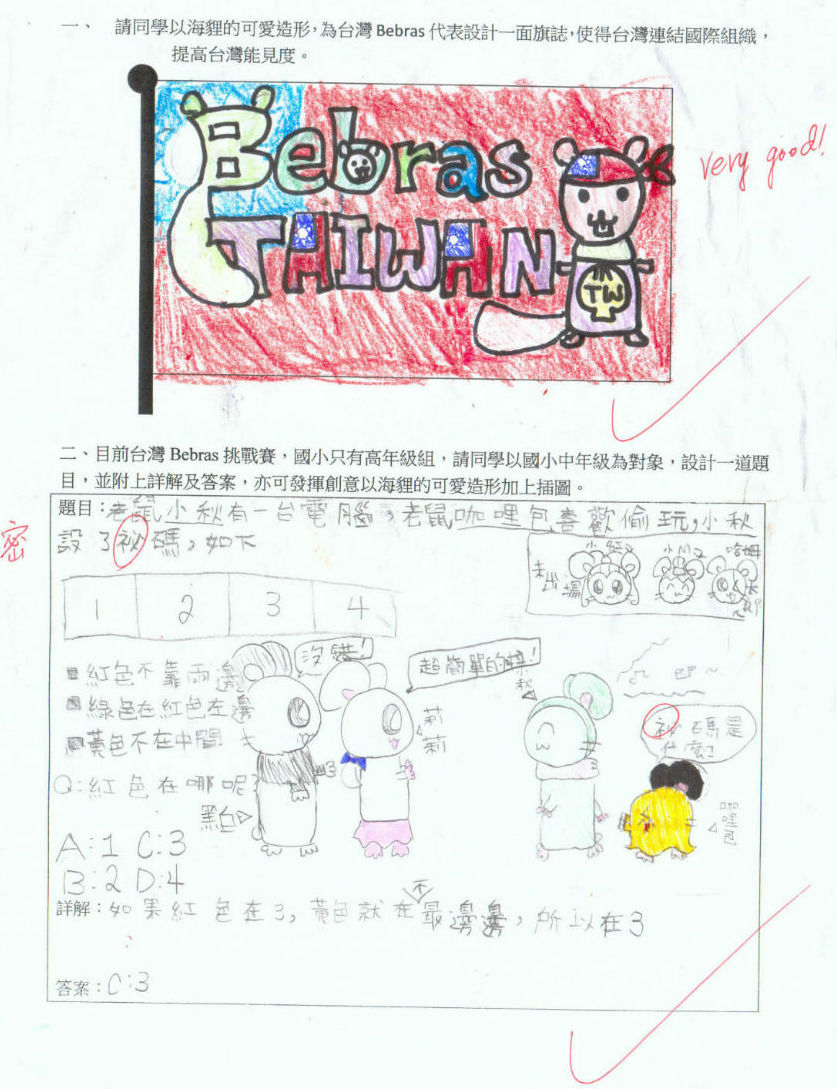 一、 請同學以海貍的可愛造形，為台灣 Bebras 代表設計一面旗誌，使得台灣連結國際組織，
提高台灣能見度。
Bebras
TAIWAN
TW
very good!
二、目前台灣 Bebras 挑戰賽，國小只有高年級組，請同學以國小中年級為對象，設計一道題
目，並附上詳解及答案，亦可發揮創意以海貍的可愛造形加上插圖。
題目：老鼠小秋有一台電腦，老鼠咖哩包喜歡偷玩，小秋
密
設了祕碼，如下
未出場
哈姆太郎
1 2 3 4
沒錯！
超簡單的
紅色不靠兩邊
綠色在紅色左邊
黃色不在中間
莉莉
小秋
祕碼是什麼？
Q：紅色在哪呢
黑白
咖哩包
A：1 C：3
B：2 D：4
不
詳解：如果紅色在3，黃色就在最邊邊，所以在3
答案：C：3